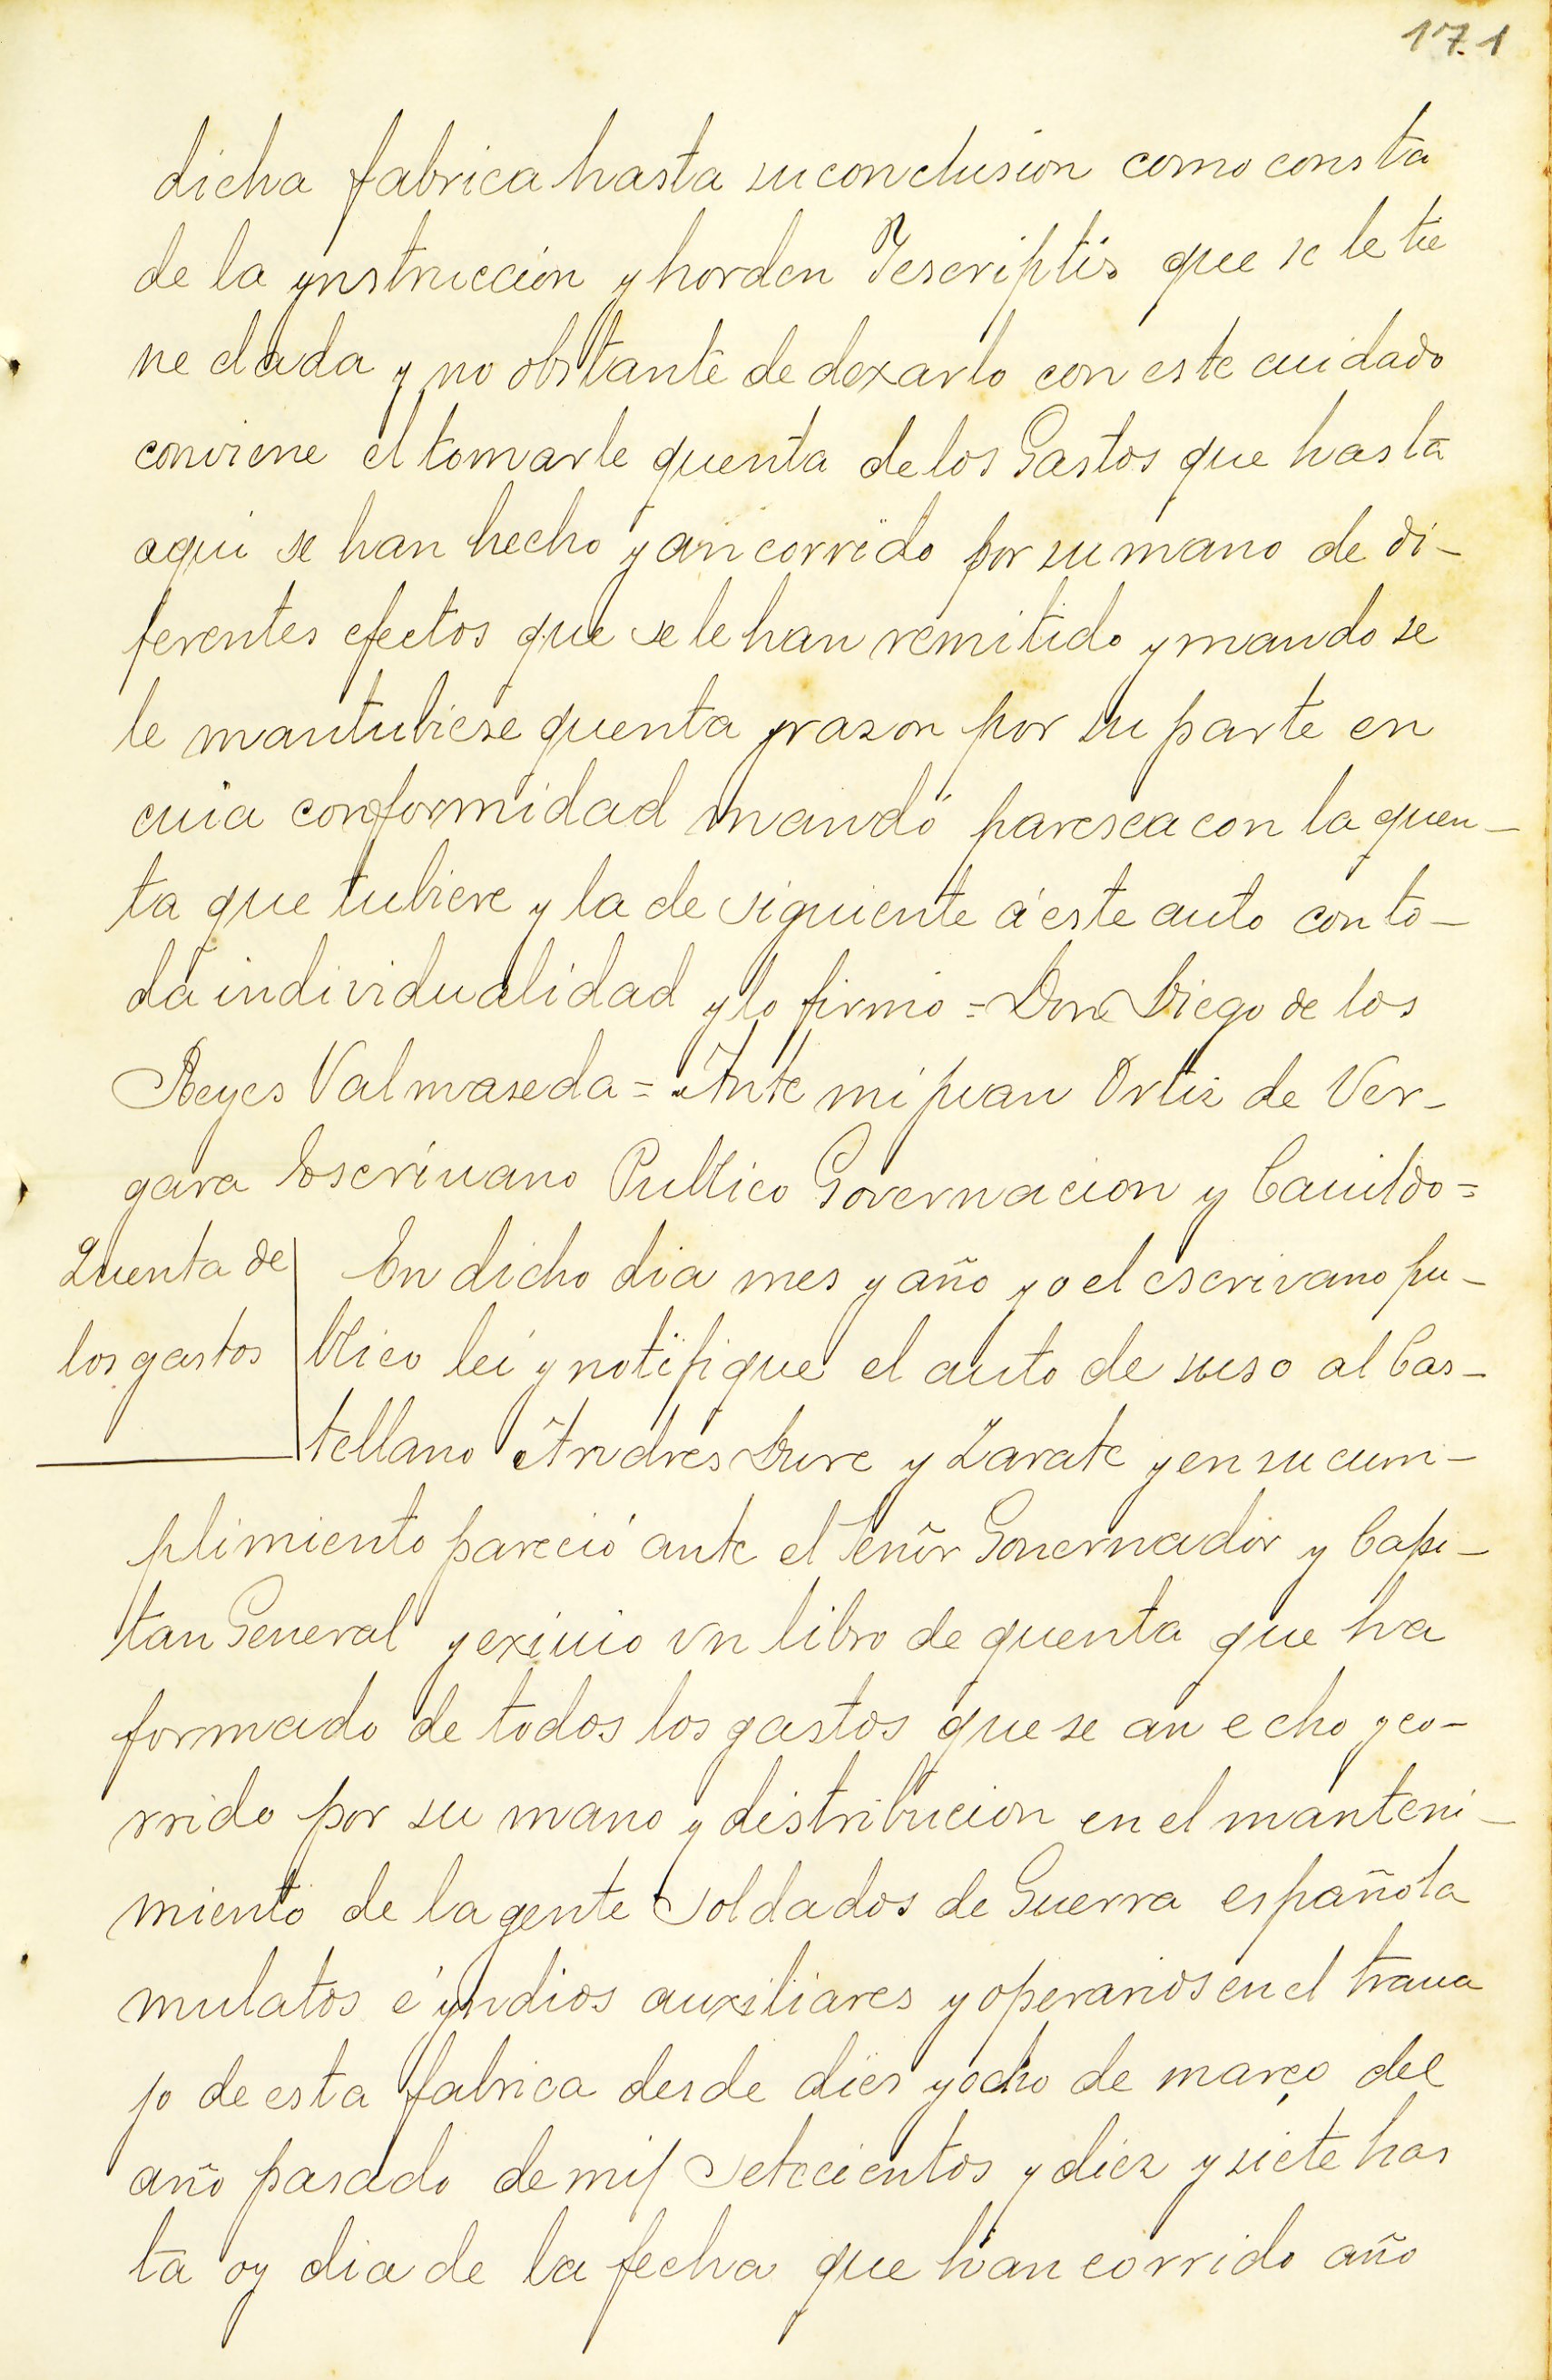 17.1
dicha fabrica hasta su conclusion como consta
de la ynstruccion y horden Jescriptis que se le tie
ne dada y no obstante de dexarlo con este cuidado
conviene el tomarle quenta de los Gastos que hasta
aqui se han hecho y an corrido por su mano de di-
ferentes efectos que se le han remitido y mando se
le mantubiese quenta y rason por su parte en
cuia conformidad mandó paresca con la quen-
ta que tubiere y la de siguiente á este auto con to-
da individualidad y lo firmo = Don Diego de los
Reyes Valmaseda = Ante mi juan Ortiz de Ver-
gara Escriuano Publico Governacion y Cauildo =
Quenta de
los gastos
En dicho dia mes y año yo el escrivano pu-
blico lei y notifique el auto de suso al Cas-
tellano Andres Dure y Zarate y en su cum-
plimiento pareció ante el señor Gouernador y Capi-
tan General y exiuio vn libro de quenta que ha
formado de todos los gastos que se an echo y co-
rrido por su mano y distribucion en el manteni-
miento de la gente soldados de Guerra española
mulatos é yndios auxiliares y operarios en el traua
jo de esta fabrica desde dies y ocho de março del
año pasado de mil setecientos y diez y siete has
ta oy dia de la fecha que han corrido año